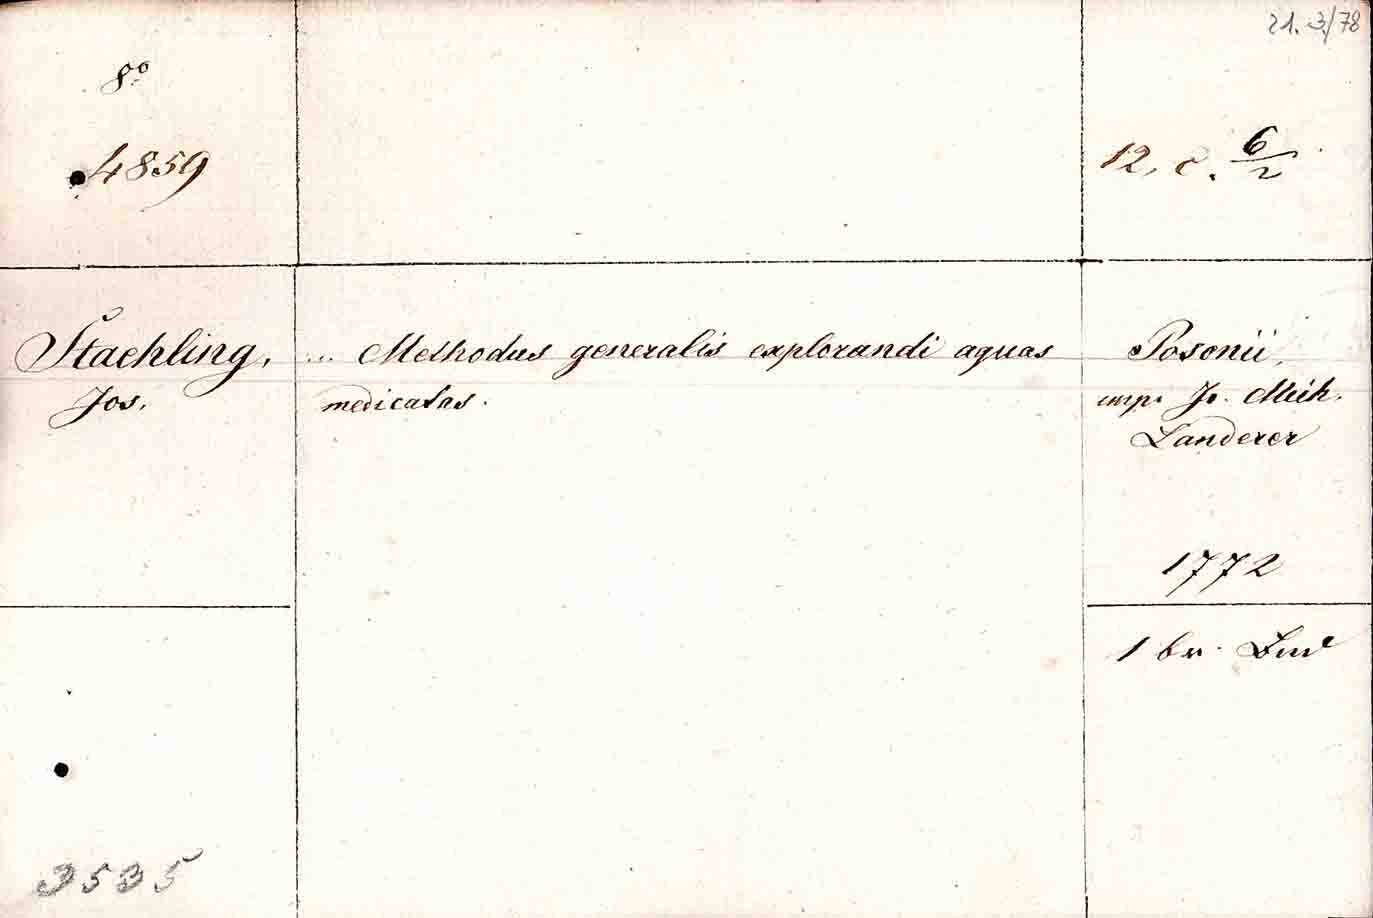 21. 3/78
8º
4859
12, c. 6/2
Staehling,
Jos.
... Methodus generalis explorandi aquas
medicatas.
Posonii,
imp. Jo. Mich.
Landerer
1772
1 br.
3535